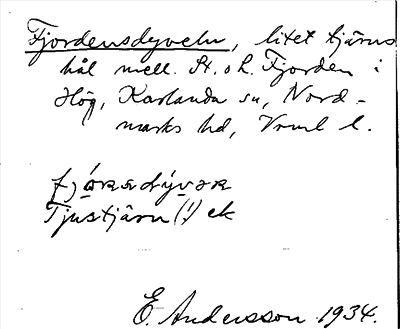 Fjordensdyveln, litet tjärns
hål mell. St. o L. Fjorden i
Hög, Karlanda sn, Nord-
marks hd, Vrml l.
Tjustjärn (!) ek
E. Andersson 1934.